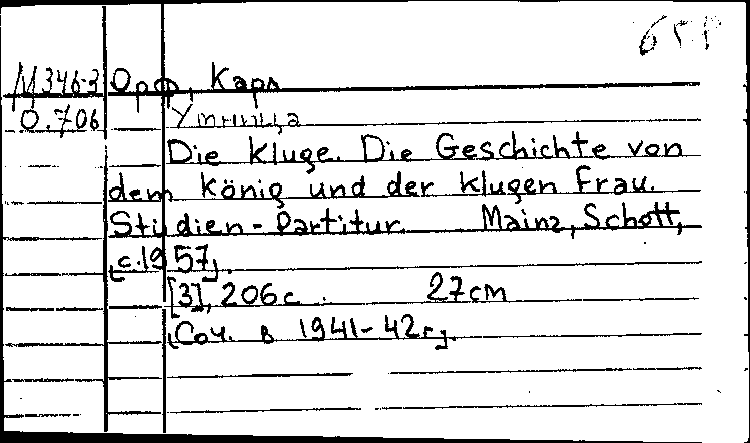 65 р
М346-3 Орф, Карл
О.706 Умница
Die Kluge. Die Geschichte von
dem König und der klugen Frau.
Studien-Partitur. Mainz, Schott,
[c.1957].
[3], 206 с. 27 cm
[Соч. в 1941-42 г].